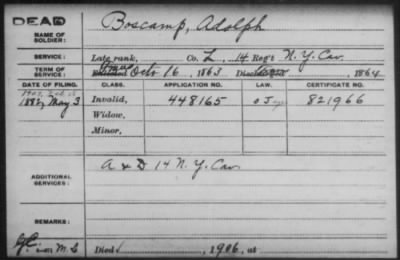 DEAD
NAME OF SOLDIER: Boscamp, Adolph
SERVICE: Late rank, Co. L, 14 Reg't N. Y. Cav.
TERM OF SERVICE: Enlisted Octr 16, 1863 1864
DATE OF FILING. CLASS. APPLICATION NO. LAW. CERTIFICATE NO.
1882, May 3 Invalid, 448165 821966
Widow,
Minor,
ADDITIONAL SERVICES: A & D 14 N. Y. Cav.
REMARKS:
Died 1906, at